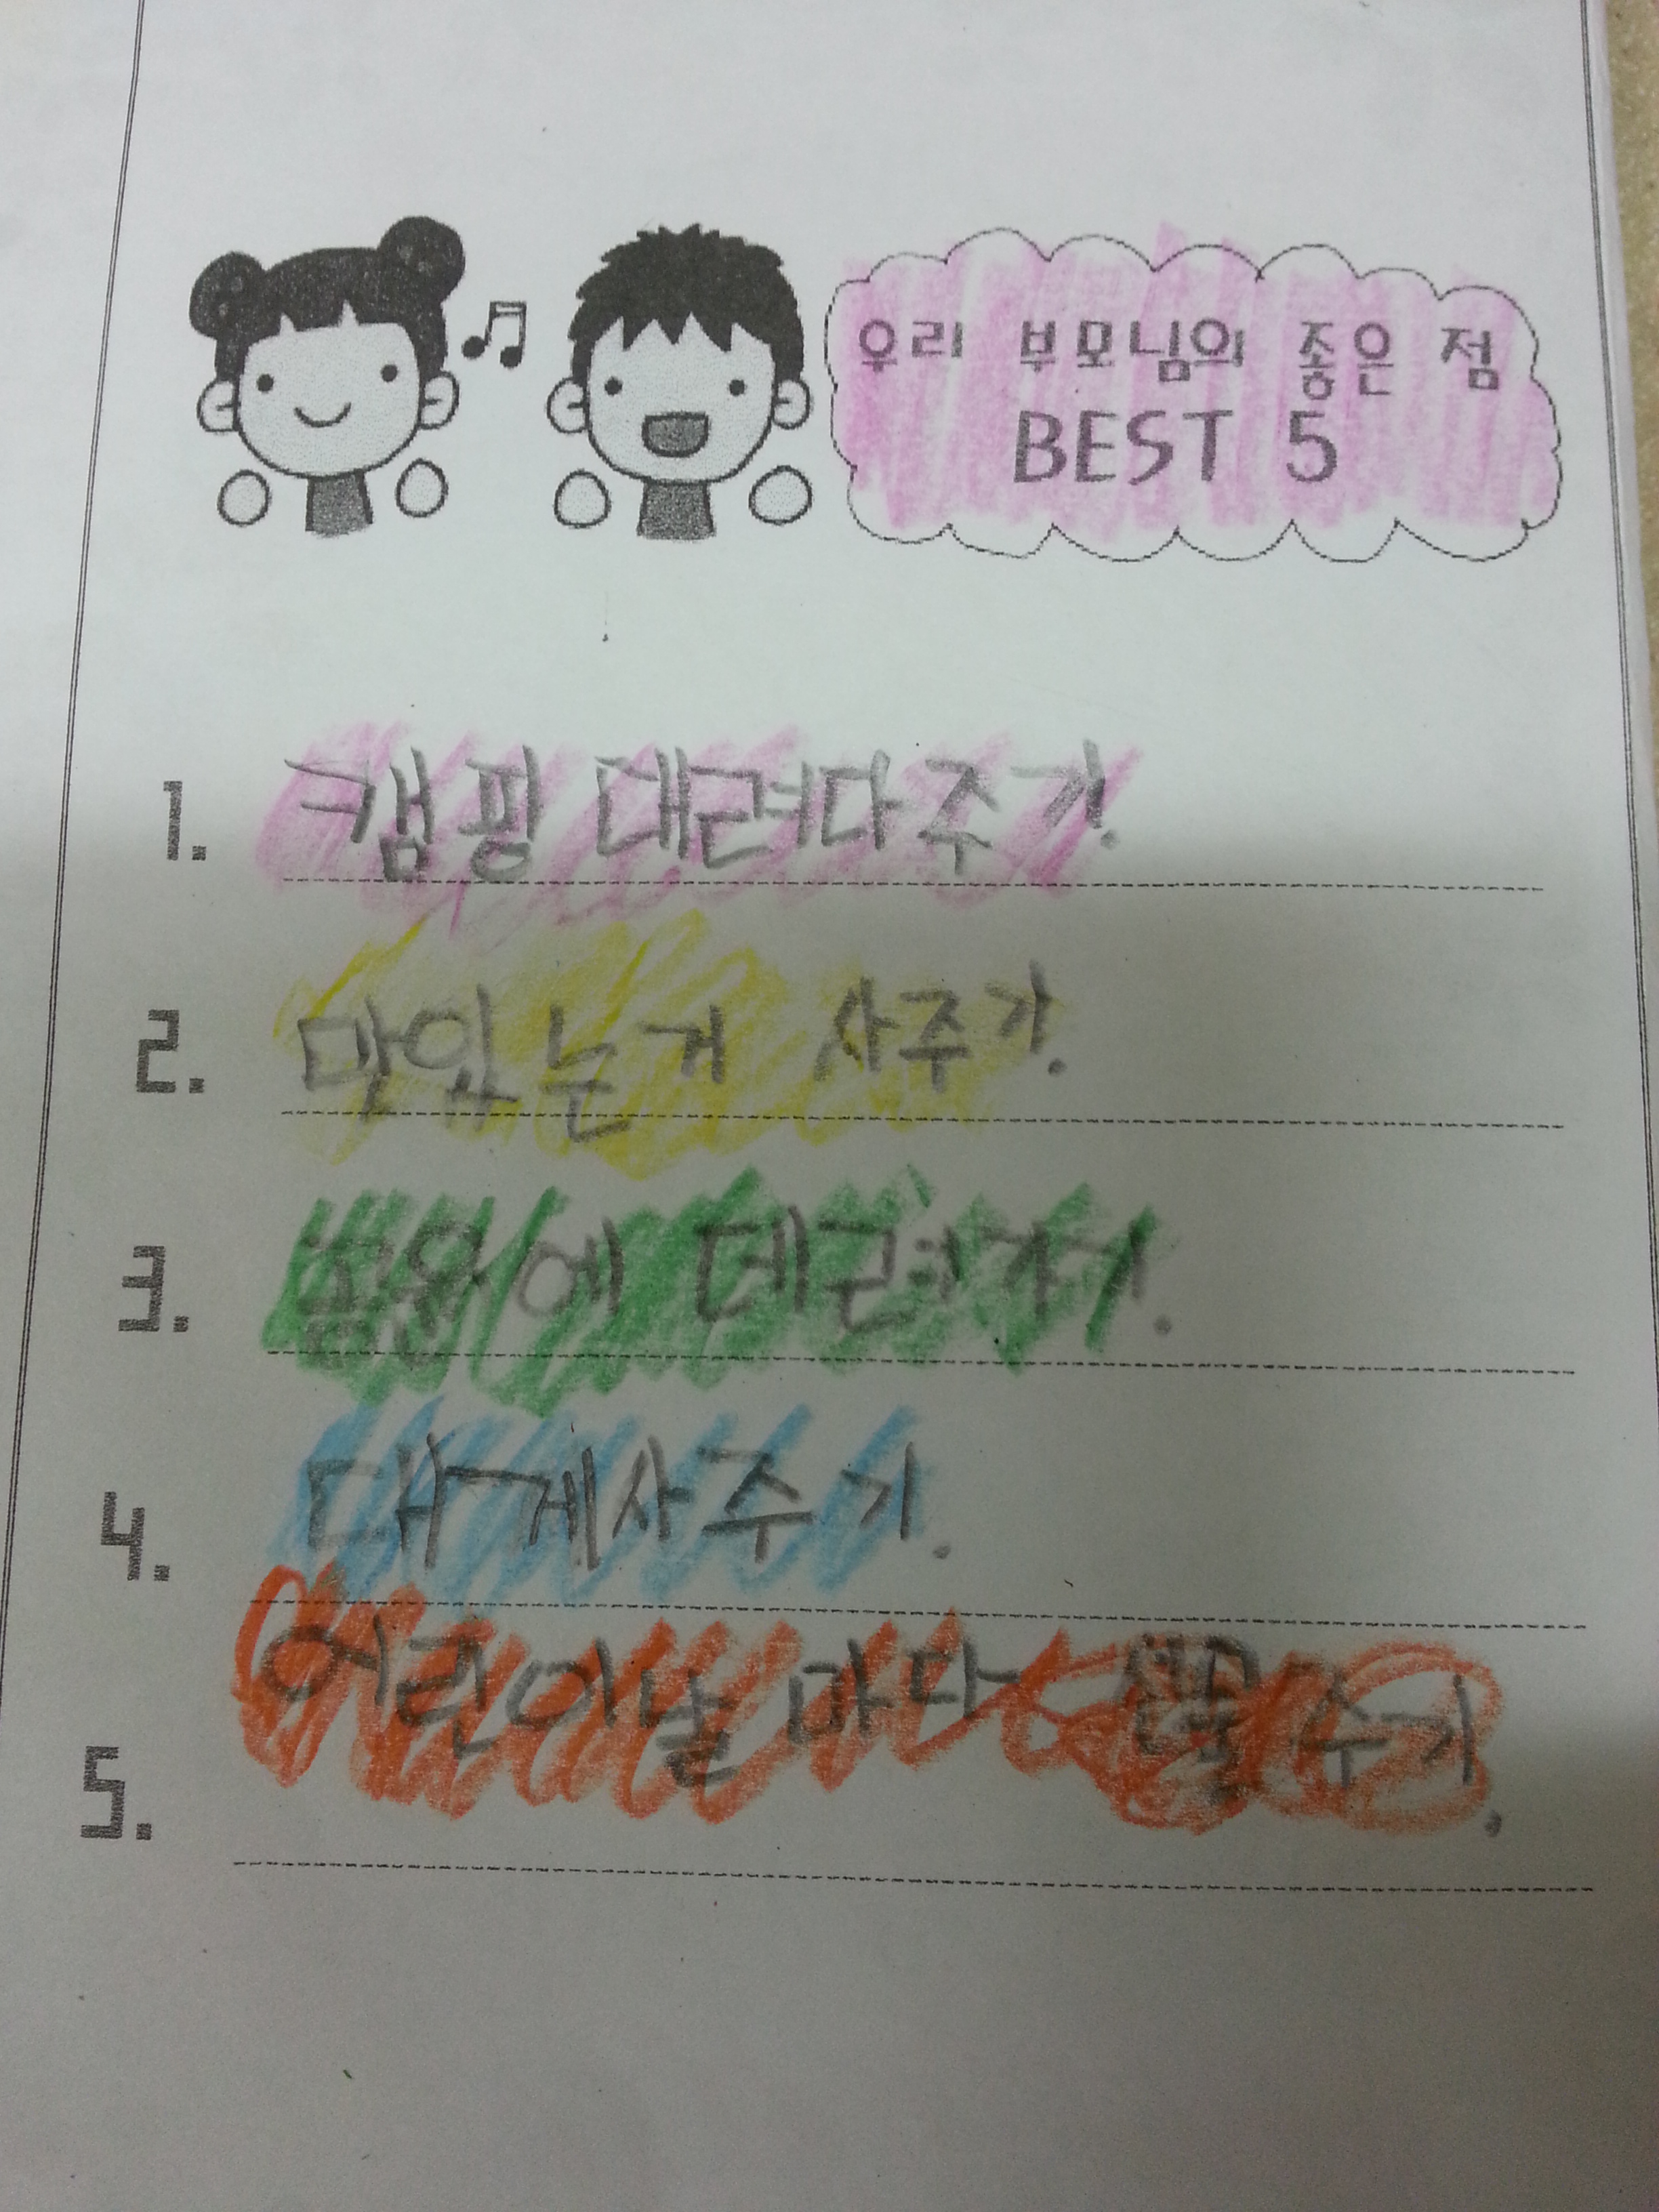 우리 부모님의 좋은 점
BEST 5
1. 캠핑 대려다주기.
2. 맛있는거 사주기.
3. 데려가기.
4. 대게사주기.
5. 어린이날 마다 선물 주기.